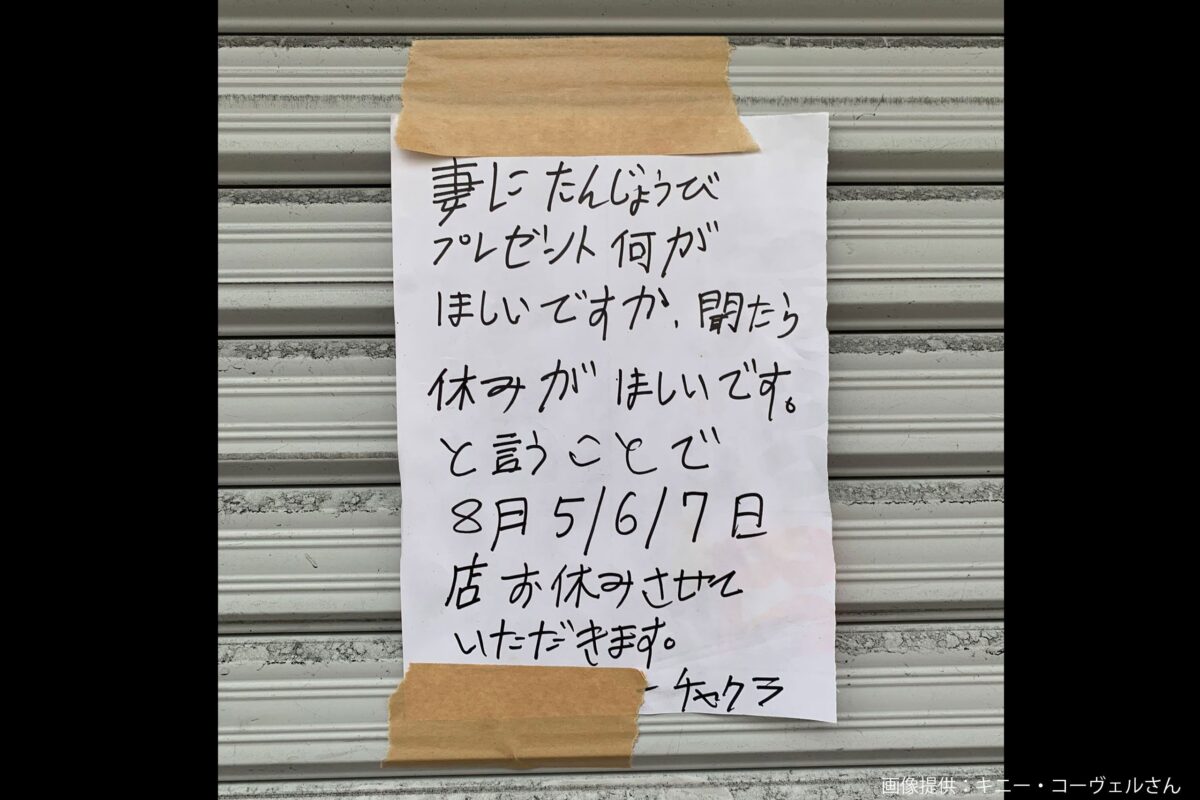 妻に たんじょうび
プレゼント 何が
ほしいですか、聞たら
休みが ほしいです。
と言うことで
8月 5/6/7日
店 お休みさせて
いただきます。
- チャクラ
画像提供:キニー・コーヴェルさん